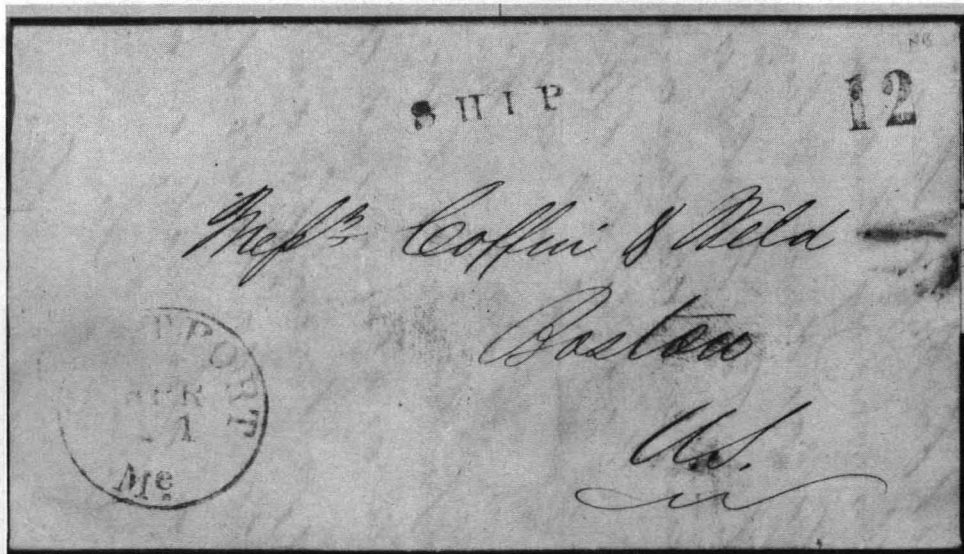 SHIP
12
Mess^rs Coffin & Weld
Boston
U.S.
TPORT
APR
1
Me.